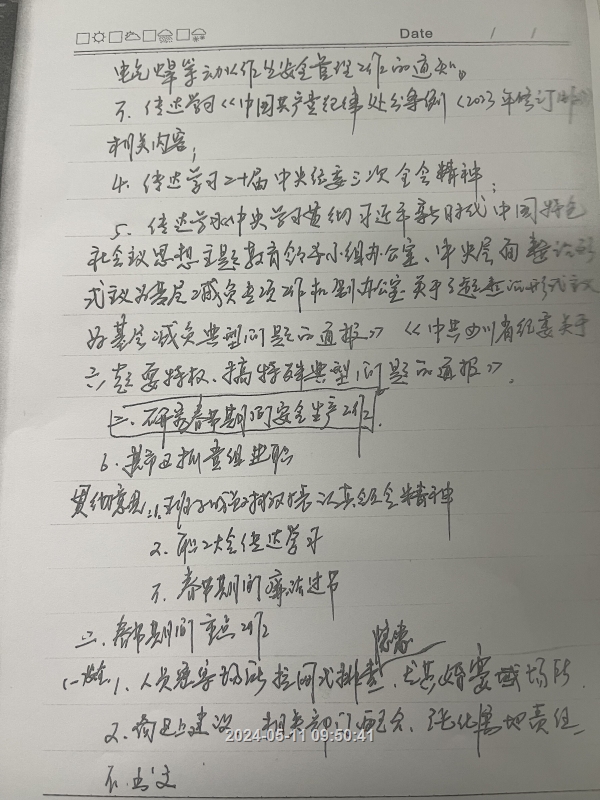 Date / /
电气焊等动火作业安全管理工作的通知。
3. 传达学习《中国共产党纪律处分条例》(2023年修订版)
相关内容;
4. 传达学习二十届中央纪委三次全会精神;
5. 传达学习《中央学习贯彻习近平新时代中国特色
社会主义思想主题教育领导小组办公室、中央层面整治形
式主义为基层减负专项工作机制办公室关于3起整治形式主义
为基层减负典型问题的通报》《中共四川省纪委关于
六起要特权、搞特殊典型问题的通报》。
二、研究春节期间安全生产工作。
6.
贯彻意见:1. 全会精神
2. 职工大会传达学习
3. 春节期间廉洁过节
二、春节期间重点工作
隐患
(一)安全 1. 人员密集场所拉网式排查,尤其婚宴 场所
2. 建设 相关部门配合,强化属地责任
3.
2024-05-11 09:50:41